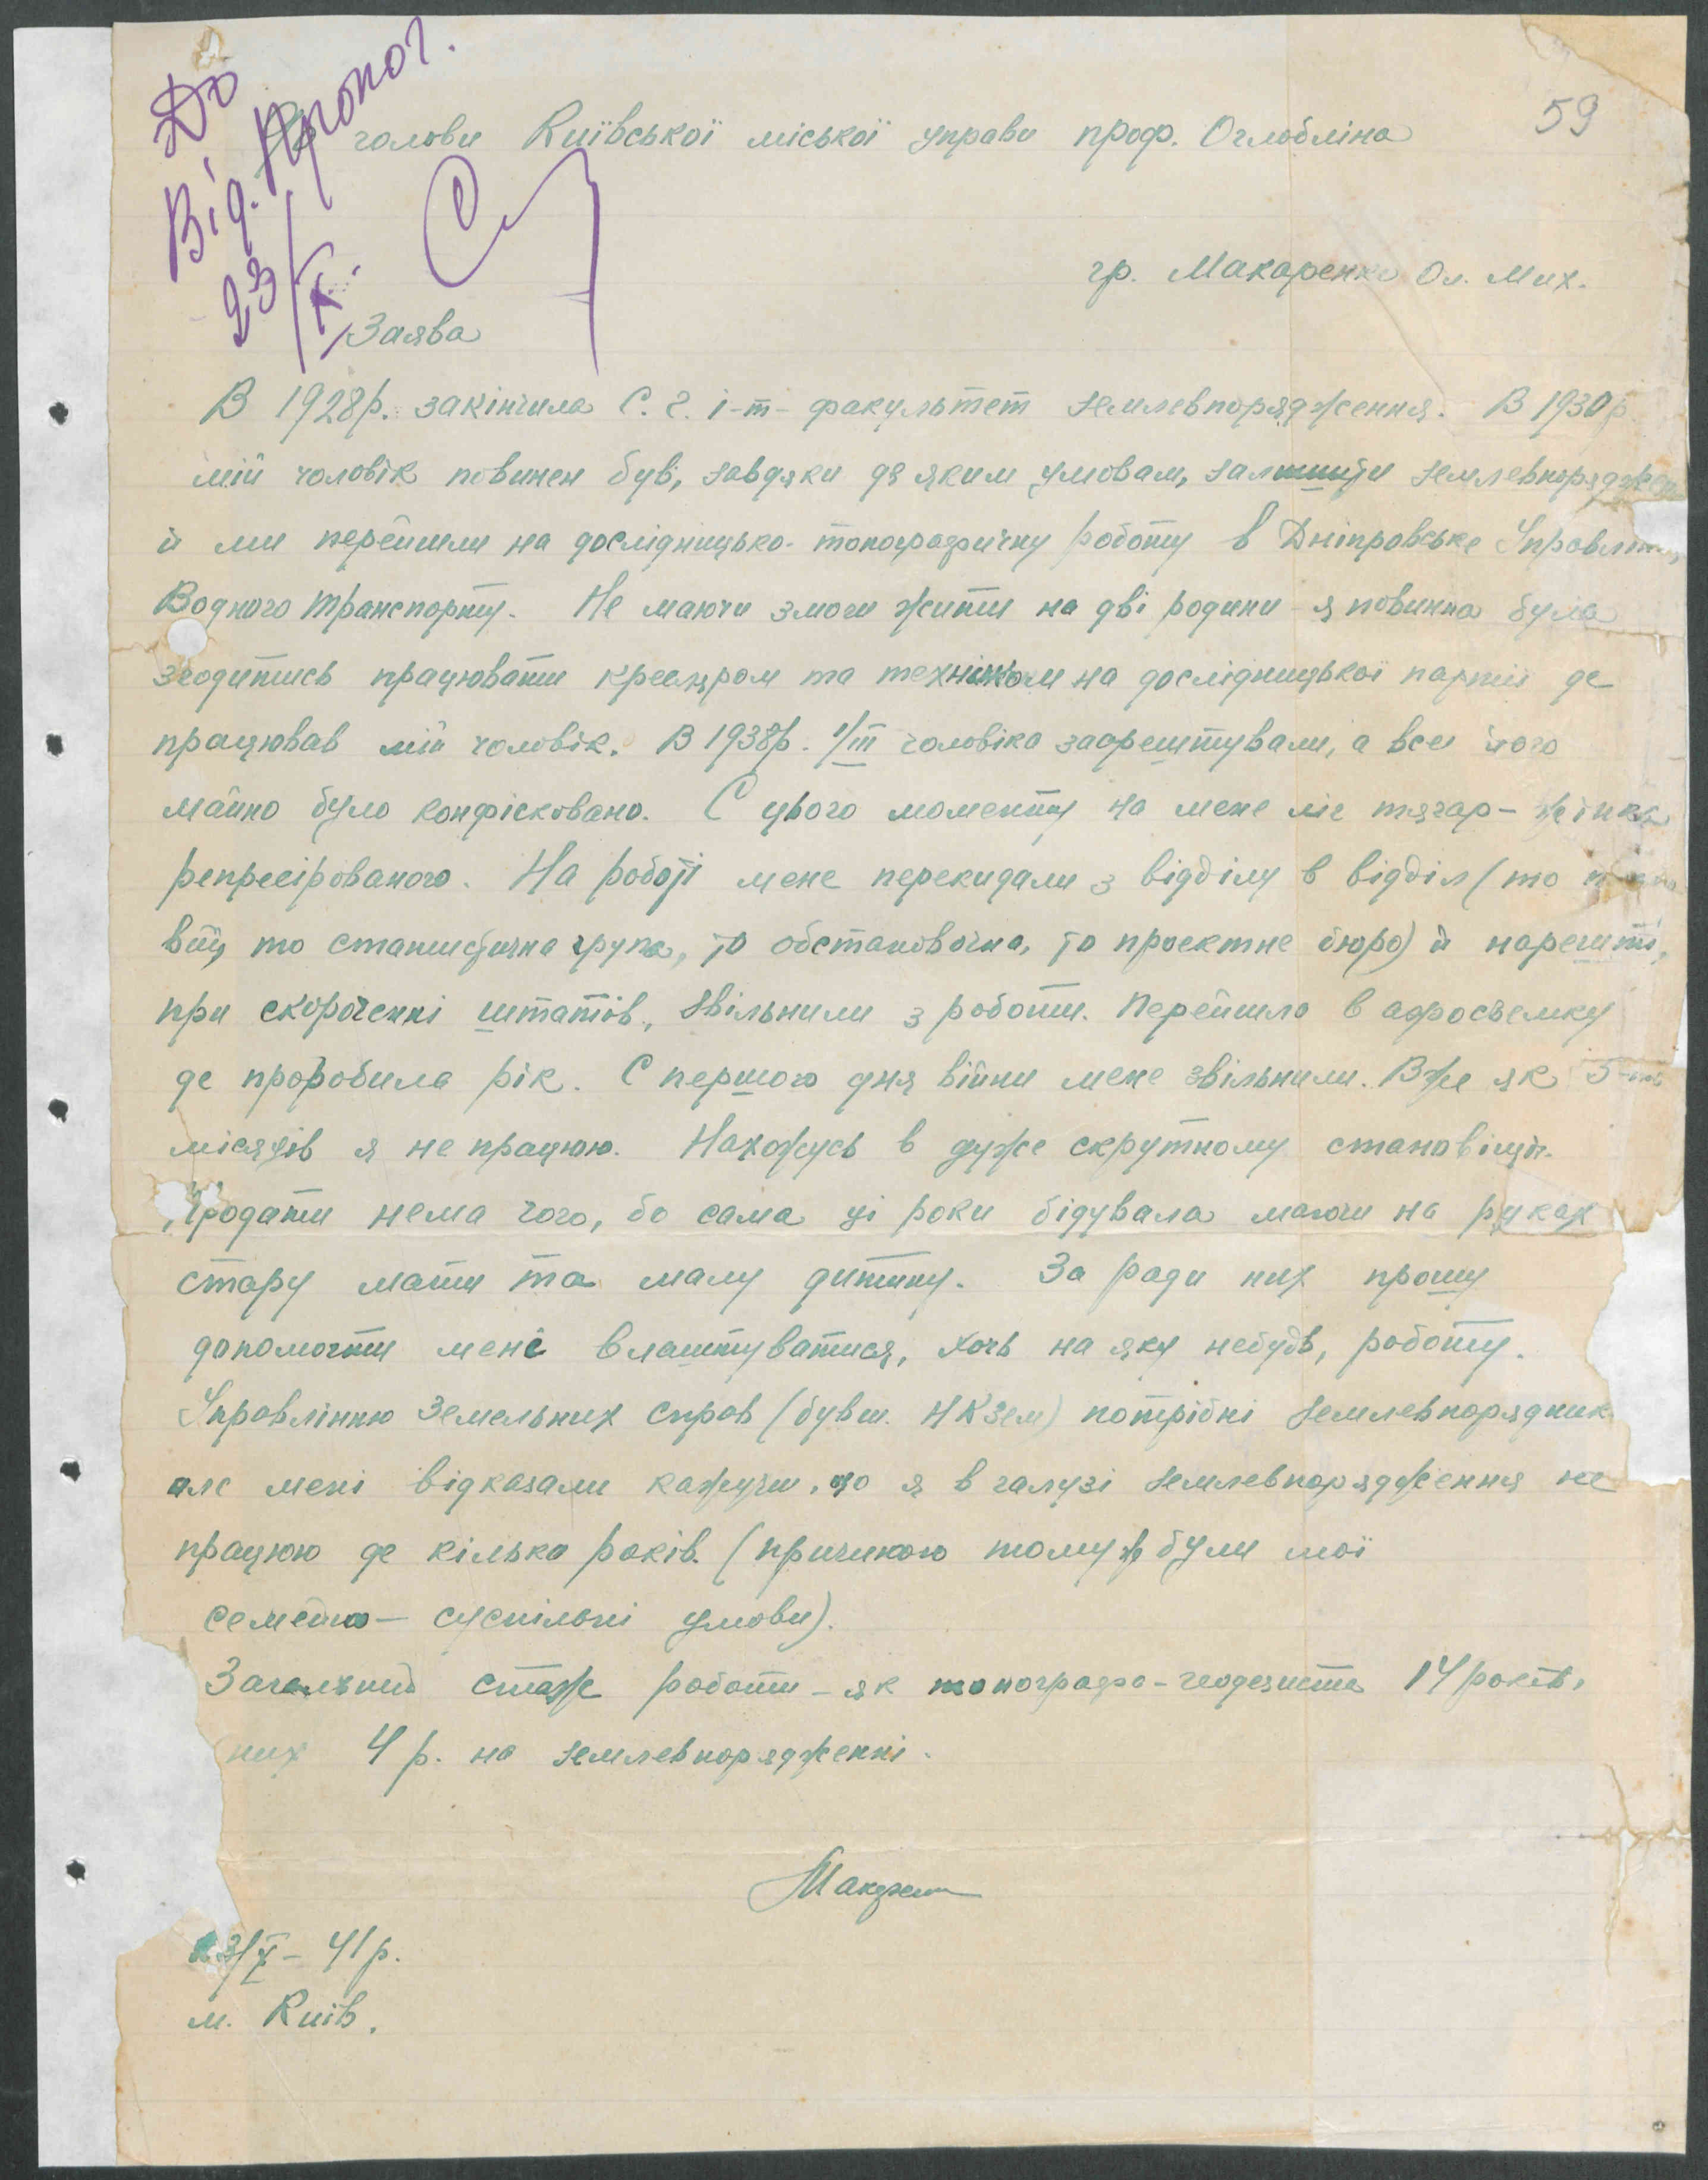 До
Від. Пропог.
23/X.
59
До голови Київської міської управи проф. Оглобліна
гр. Макаренко Ол. Мих.
Заява
В 1928р. закінчила С. г. і-т- факультет землевпорядження. В 1930р.
мій чоловік повинен був, завдяки де яким умовам, залишити землевпоряджен
й ми перейшли на дослідницько-топографичну роботу в Дніпровське Управлін
Водного транспорту. Не маючи змоги жити на дві родини я повинна була
згодитись працювати кресляром та техніком на дослідницької партії де
працював мій чоловік. В 1938р. 1/III чоловіка заарештували, а все його
майно було конфісковано. С цього моменту на мене ліг тягар - жінка
репресірованого. На роботі мене перекидали з відділу в відділ (то
то статистична група, то обстановочна, то проектне бюро) й нарешті,
при скороченні штатів, звільнили з роботи. Перейшла в аэросъемку
де проробила рік. С першого дня війни мене звільнили. Вже як 5-ть
місяців я не працюю. Нахожусь в дуже скрутному становіщі.
Продати нема чого, бо сама ці роки бідувала маючи на руках
стару мати та малу дитину. За ради них прошу
допомогти мені влаштуватися, хочь на яку небудь, роботу.
Управлінню Земельних справ (бувш. НКЗем) потрібні землевпорядник
але мені відказали кажучи, що я в галузі землевпорядження не
працюю де кілька років. (причиною тому ж були мої
семейно - суспільні умови).
Загальний стаж роботи - як топографа-геодезиста 14 років,
них 4 р. на землевпорядженні.
Макарен
23/X - 41р.
м. Київ.